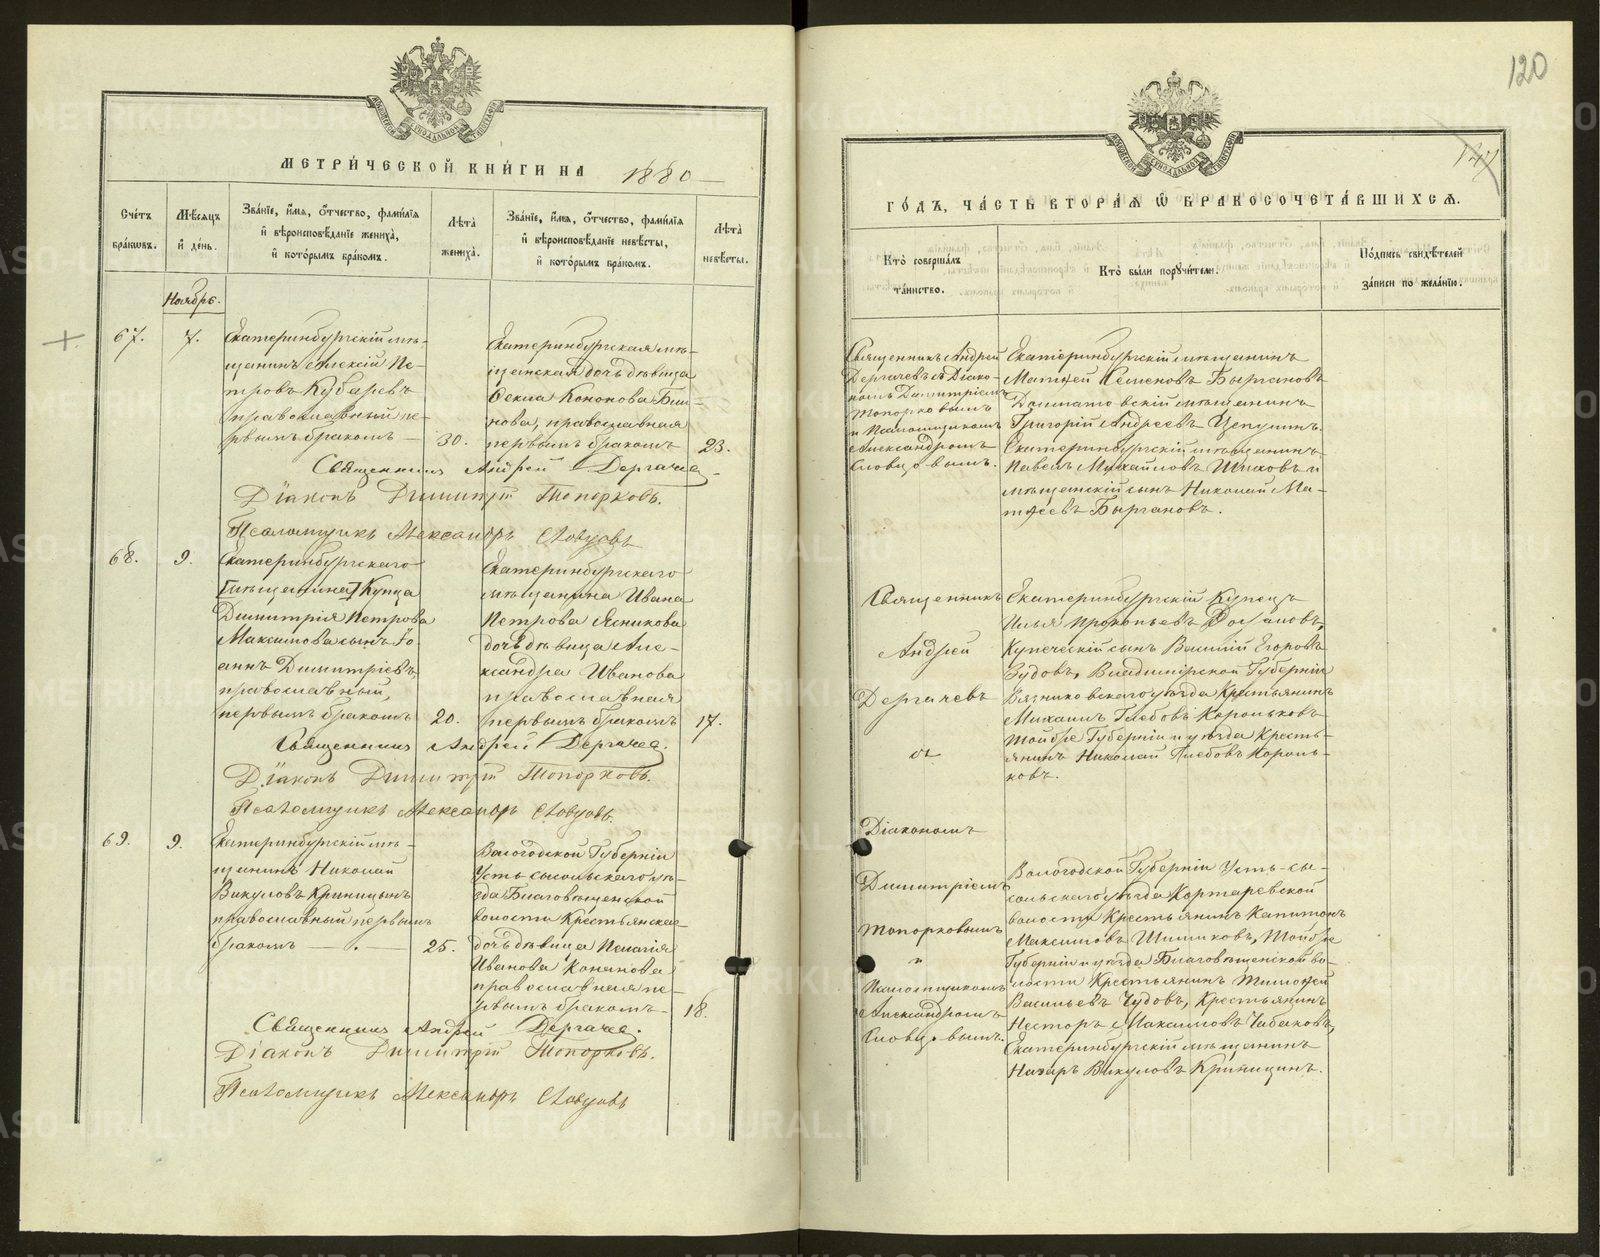 МЕТРИ́ЧЕСКОЙ КНИ́ГИ НА 1880
Сче́тъ бра́ковъ.
Мѣ́сяцъ и҆ де́нь.
Зва́нїе, и҆́мѧ, ѻ҆́тчество, фами́лїѧ и҆ вѣроисповѣ́данїе жениха̀, и҆ кото́рымъ бра́комъ.
Лѣ́та жениха̀.
Зва́нїе, и҆́мѧ, ѻ҆́тчество, фами́лїѧ и҆ вѣроисповѣ́данїе невѣ́сты, и҆ кото́рымъ бра́комъ.
Лѣ́та невѣ́сты.
Ноябрь.
67.
7.
Екатеринбургскій мѣ-
щанинъ Алексій Пе-
тровъ Кубаревъ
православный пе-
рвымъ бракомъ
30.
Екатеринбургская мѣ-
щанская дочь дѣвица
Ѳекла Кононова
православная
первымъ бракомъ
23.
Священникъ Андрей Дергачев
Діаконъ Димитрій Топорковъ.
Псаломщикъ Александръ Словцовъ
68.
9.
Екатеринбургскаго
[мѣщанина] Купца
Димитрія Петрова
Максимова сынъ Іо-
аннъ Димитріевъ,
православный,
первымъ бракомъ
20.
Екатеринбургскаго
мѣщанина Ивана
Петрова Ясникова
дочь дѣвица Але-
ксандра Иванова
православная
первымъ бракомъ
17.
Священникъ Андрей Дергачев.
Діаконъ Димитрій Топорковъ.
Псаломщикъ Александръ Словцовъ.
69.
9.
Екатеринбургскій мѣ-
щанинъ Николай
Викуловъ Криницынъ
православный первымъ
бракомъ
25.
Вологодской Губерніи
Усть-сысольскаго уѣ-
зда Благовѣщенской
волости Крестьянская
дочь дѣвица Пелагія
Иванова Конанова
православная пе-
рвымъ бракомъ
18.
Священникъ Андрей Дергачев.
Діаконъ Димитрій Топорковъ.
Псаломщикъ Александръ Словцовъ
120
147
ГО́ДЪ, ЧА́СТЬ ВТОРА́Ѧ Ѽ БРАКОСОЧЕТА́ВШИХСѦ.
Кто̀ соверша́лъ та́инство.
Кто̀ бы́ли порꙋчи́тели.
По́дпись свидѣ́телей за́писи по жела́нїю.
Священникъ Андрей
Дергачевъ съ Діако-
номъ Димитріемъ
Топорковымъ
и Псаломщикомъ
Александромъ
Словцовымъ.
Екатеринбургскій мѣщанинъ
Матѳей Семеновъ Быргановъ
Далматовскій мѣщанинъ
Григорій Андреевъ
Екатеринбургскій мѣщанинъ
Павелъ Михайловъ Шиховъ и
мѣщанскій сынъ Николай Ма-
тѳеевъ Быргановъ.
Священникъ
Андрей
Дергачевъ
съ
Діакономъ
Димитріемъ
Топорковымъ
и
Псаломщикомъ
Александромъ
Словцовымъ.
Екатеринбургскій Купецъ
Илья Прокопьевъ
Купеческій сынъ Василій Егоровъ
Зудовъ, Владимірской Губерніи
Вязниковскаго уѣзда Крестьянинъ
Михаилъ Глебовъ Корольковъ
той же Губерніи и уѣзда Кресть-
янинъ Николай Глебовъ Король-
ковъ.
Вологодской Губерніи Усть-сы-
сольскаго уѣзда Корткеревской
волости Крестьянинъ Капитонъ
Максимовъ Шишковъ, той же
Губерніи и уѣзда Благовѣщенской во-
лости Крестьянинъ Тимоѳей
Васильевъ Чудовъ, Крестьянинъ
Несторъ Максимовъ Чабаковъ,
Екатеринбургскій мѣщанинъ
Назаръ Викуловъ Криницынъ.